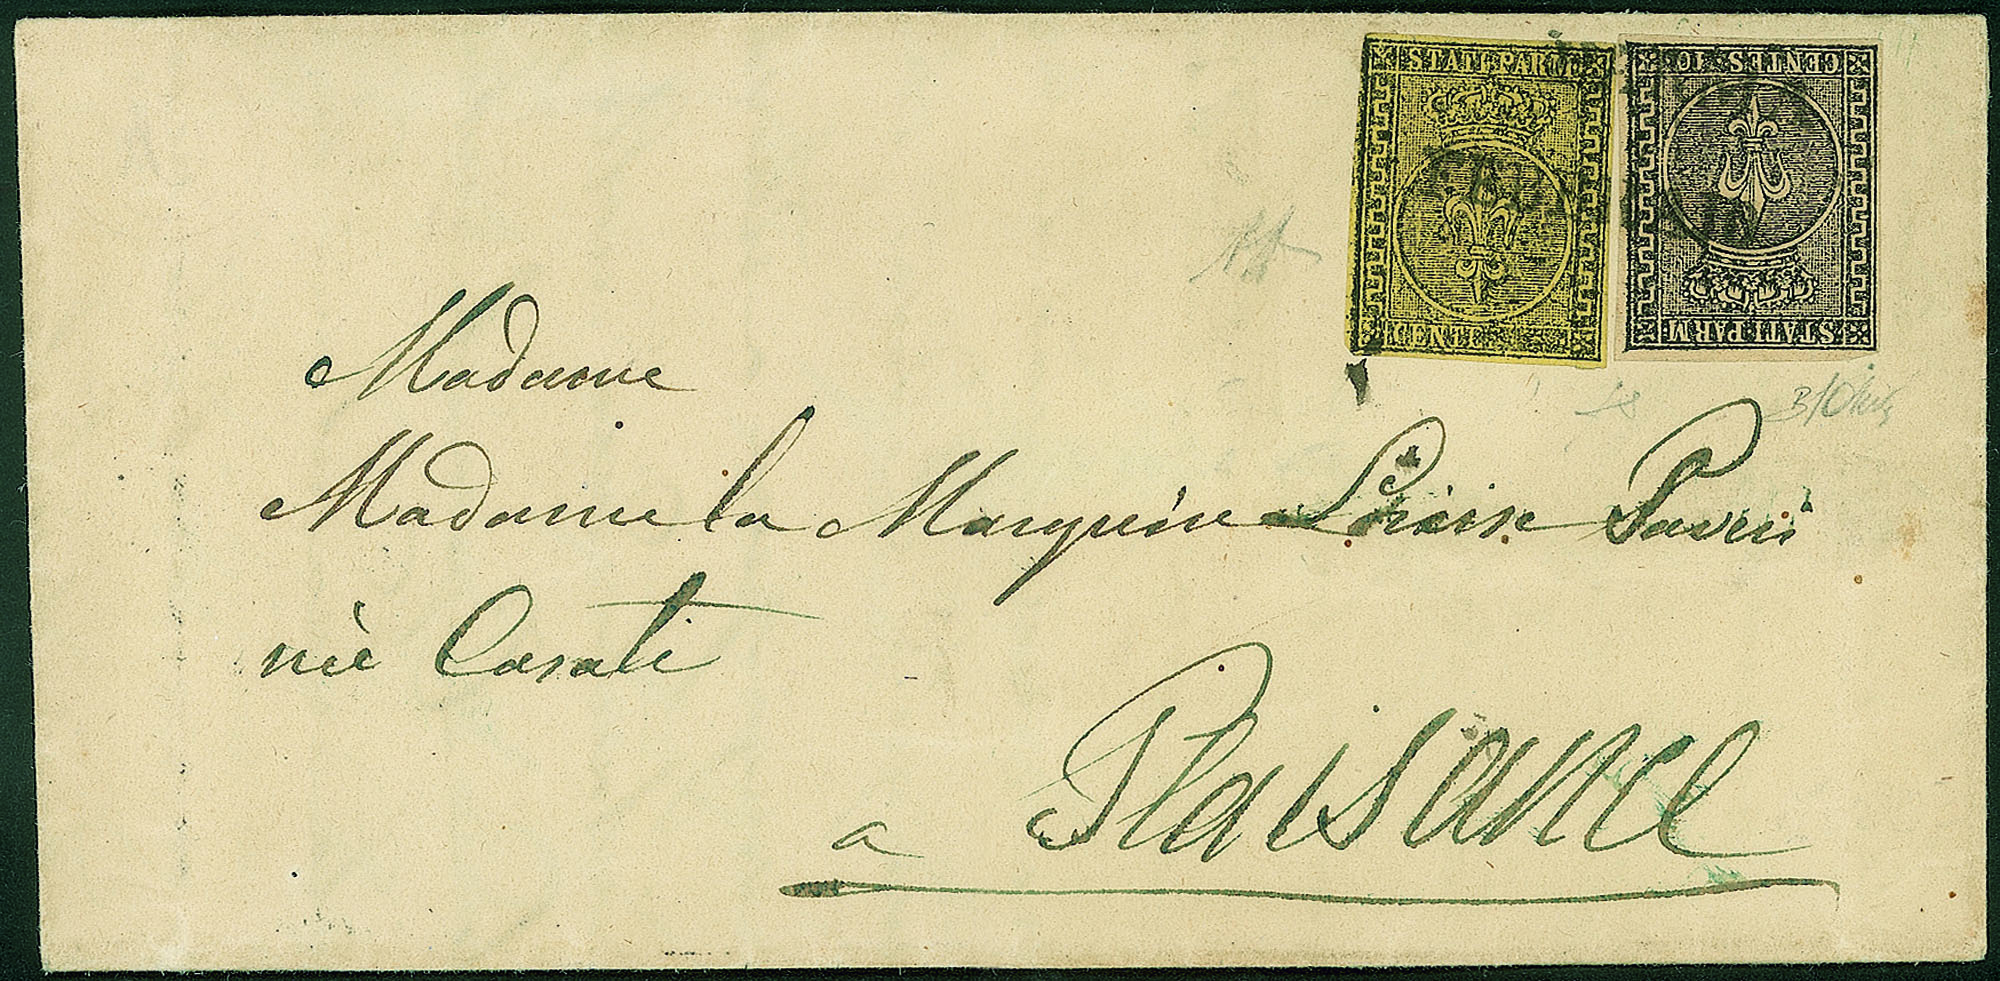 STATI PARM
CENTES 10
CENTE
STATI PARM
Madame
Madame la Marquise Louise Pavesi
née Casati
a Plaisance